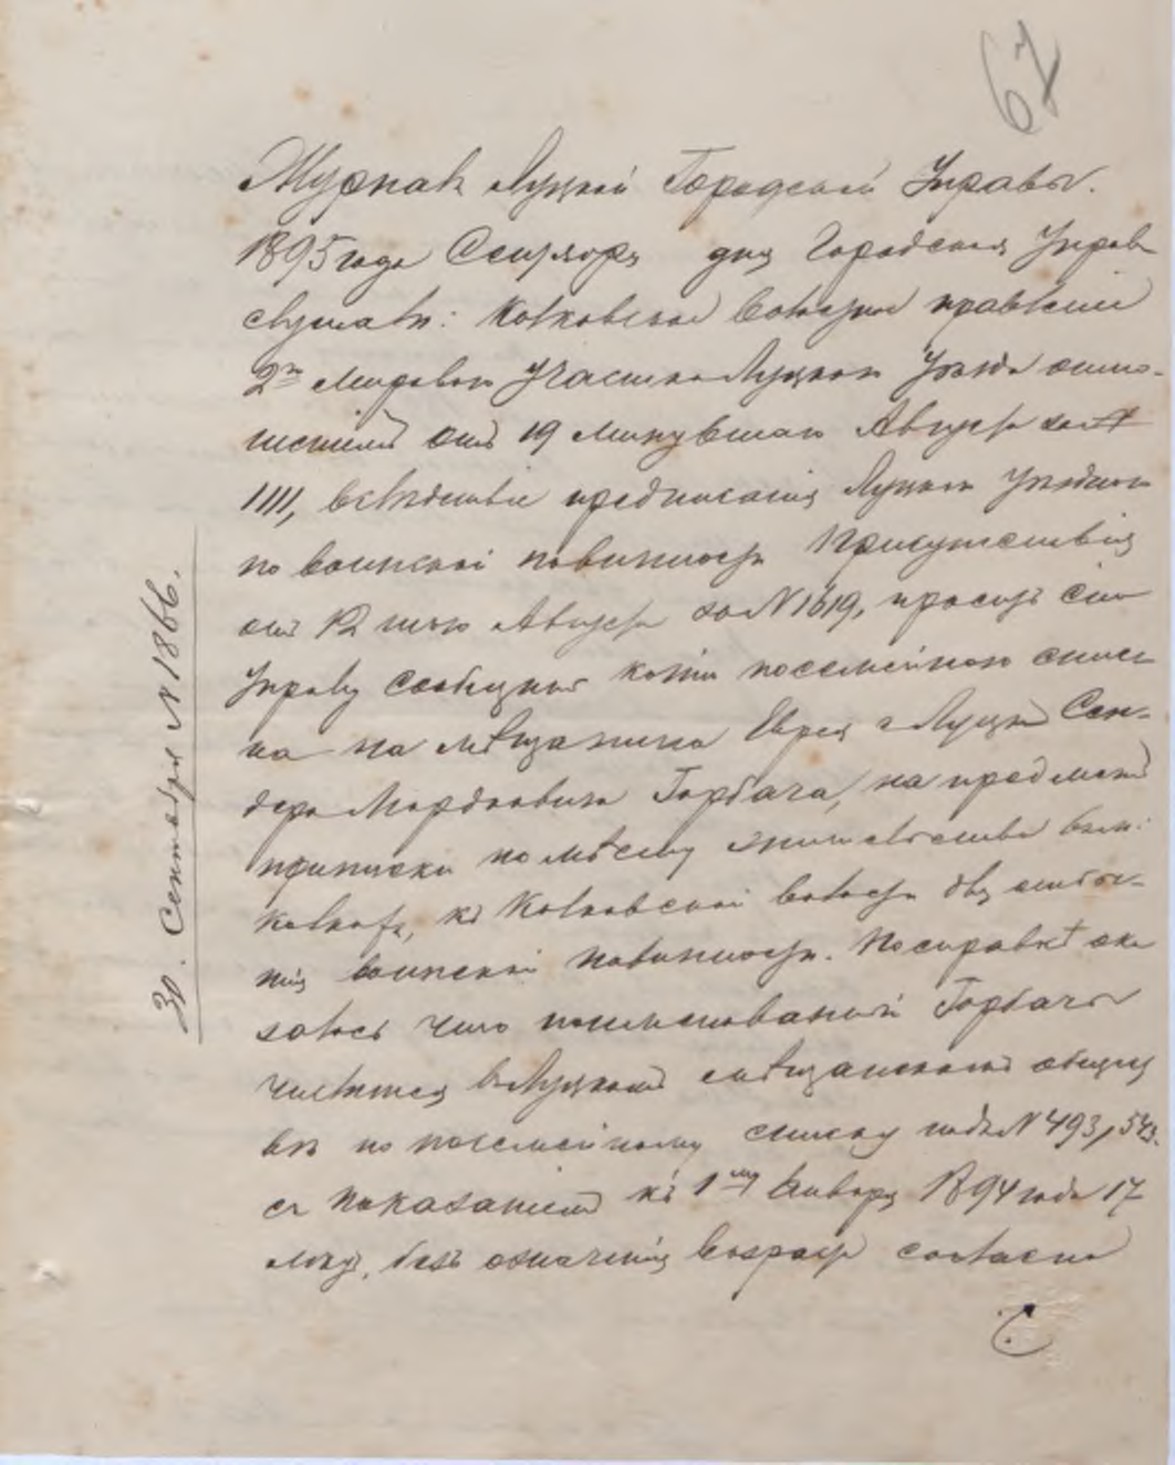 67
Журналъ Луцкой Городской Управы.
1895 года Сентября дня Городская Управа
слушали: Колковское Волостное правленіе
2го Мироваго Участка Луцкаго Уѣзда отно-
шеніемъ отъ 19 минувшаго Августа за №
1111, вслѣдствіе предписанія Луцкаго Уѣзднаго
по воинской повинности Присутствія
отъ 12 того Августа за № 1619, проситъ сію
Управу сообщить копію посемейнаго спис-
ка на мѣщанина Еврея г. Луцка Сен-
дера Мордковича Горбача, на предметъ
приписки по мѣсту жительства въ м.
Колкахъ, къ Колковской волости для отбы-
тія воинской повинности. По справкѣ ока
залось что поименованный Горбачъ
числится въ Луцкомъ мѣщанскомъ общест
вѣ по посемейному списку подъ № 493/543
съ показаніемъ къ 1му Января 1894 года 17
лѣтъ, безъ означенія возраста согласно
30. Сентября № 1866.